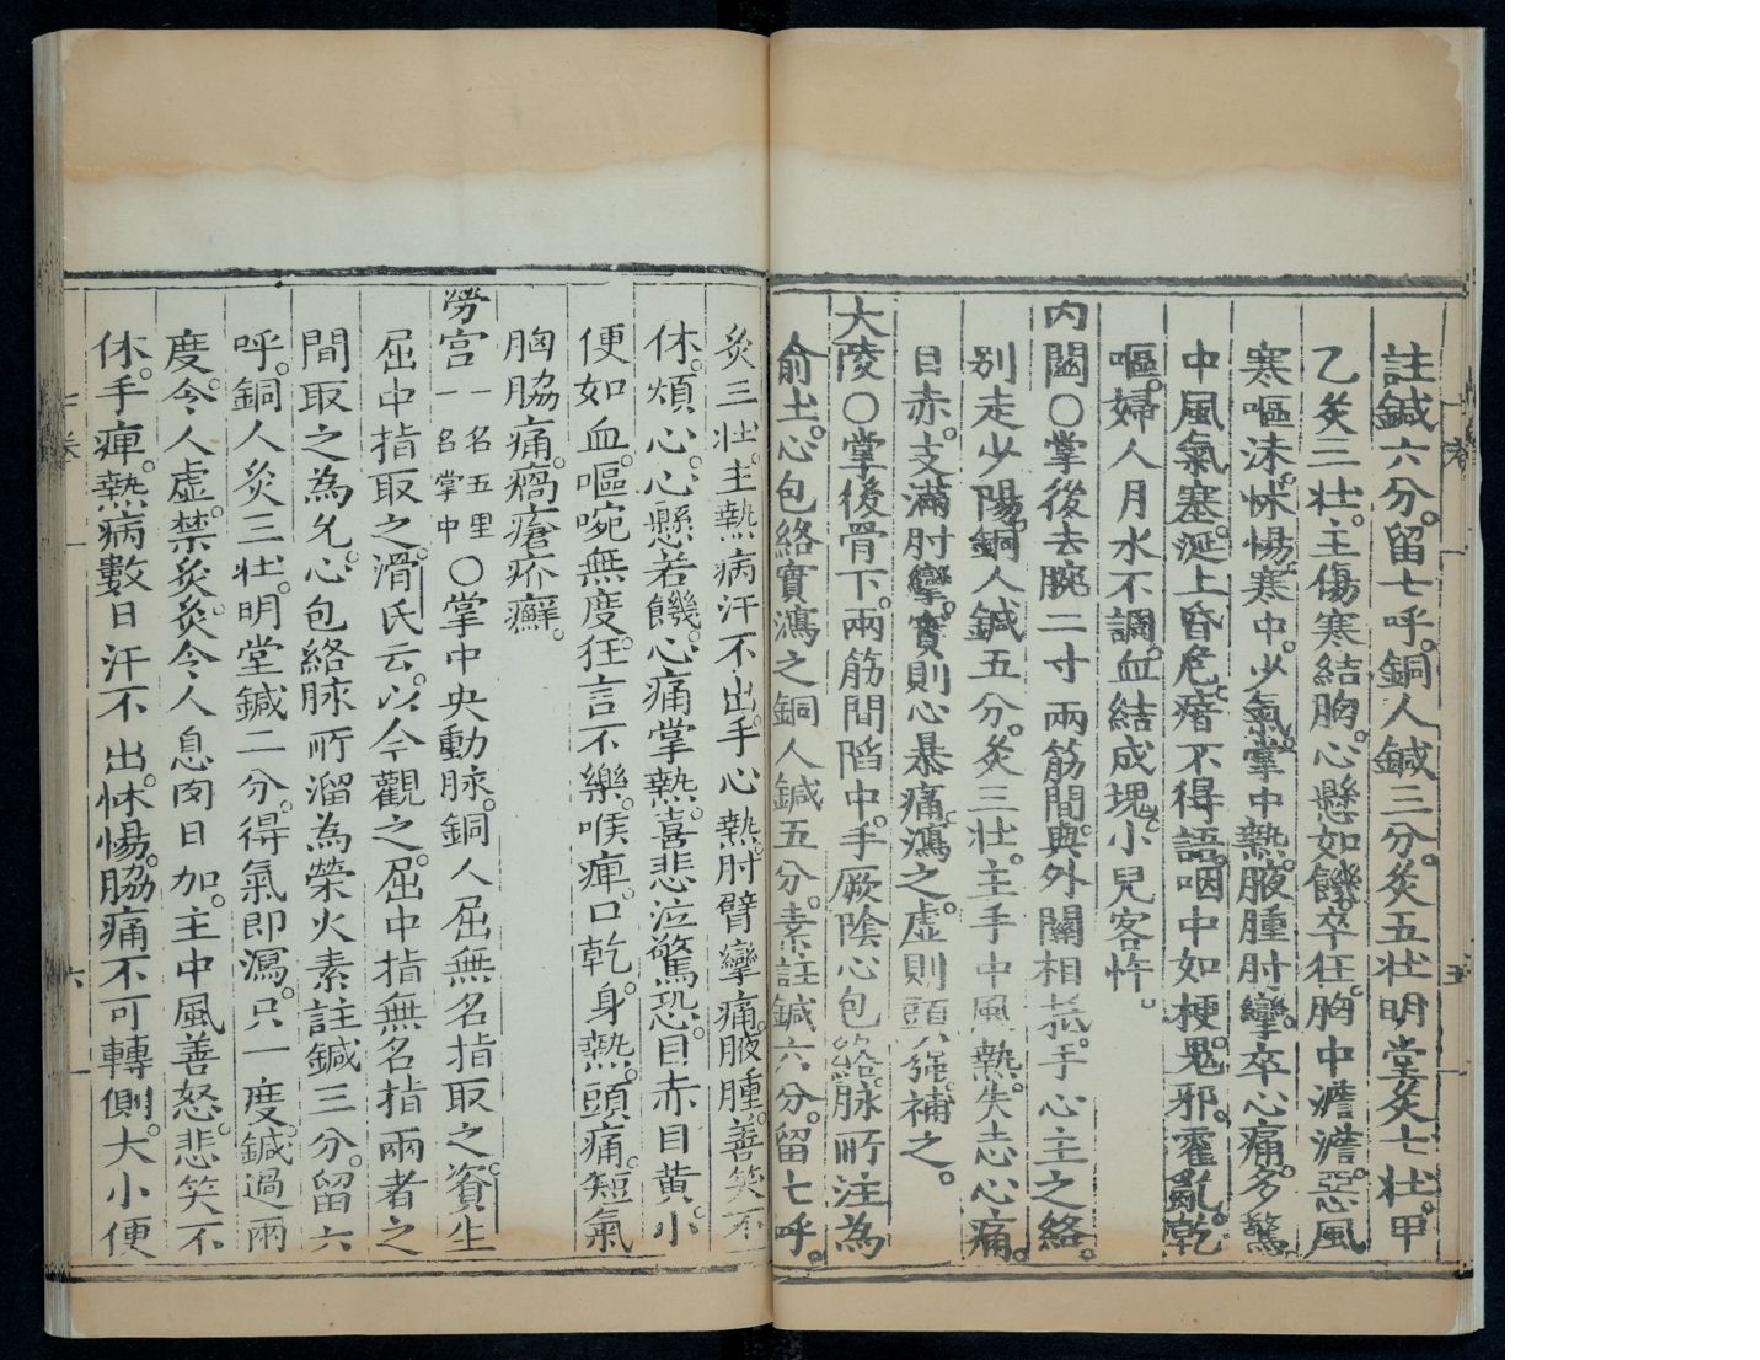 註鍼六分。留七呼。銅人鍼三分。灸五壯明堂灸七壯。甲
乙灸三壯。主傷寒結胸。心懸如饑。卒狂。胸中澹澹。惡風
寒嘔沫。怵惕。寒中。少氣。掌中熱。腋腫肘攣。卒心痛。多驚。
中風氣塞。涎上昏危。瘖不得語。咽中如梗。鬼邪。霍亂。乾
嘔。婦人月水不調。血結成塊。小兒客忤。
內關○掌後去腕二寸兩筋間。與外關相抵。手心主之絡。
別走少陽。銅人鍼五分。灸三壯。主手中風熱。失志心痛。
目赤。支滿肘攣。實則心暴痛。瀉之。虛則頭强。補之。
大陵○掌後骨下。兩筋間陷中。手厥陰心包絡脉所注為
俞土。心包絡實瀉之銅人鍼五分。素註鍼六分。留七呼。
灸三壯。主熱病汗不出。手心熱。肘臂攣痛。腋腫。善笑不
休。煩心。心懸若饑。心痛掌熱。喜悲泣驚恐。目赤目黃。小
便如血。嘔啘無度。狂言不樂。喉痺。口乾。身熱。頭痛。短氣
胸脇痛。瘑瘡疥癬。
勞宮一名五里一名掌中○掌中央動脉。銅人屈無名指取之。資生
屈中指取之。滑氏云。以今觀之。屈中指無名指兩者之
間取之為允。心包絡脉所溜為榮火素註鍼三分。留六
呼。銅人灸三壯。明堂鍼二分。得氣即瀉。只一度。鍼過兩
度。令人虛。禁灸。灸令人息肉日加。主中風善怒。悲笑不
休。手痺。熱病數日汗不出。怵惕。脇痛不可轉側。大小便